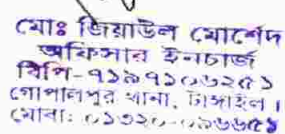 মোঃ জিয়াউল মোর্শেদ
অফিসার ইনচার্জ
বিপি-৭৯৯৭১০৬২৫১
গোপালপুর থানা, টাঙ্গাইল।
মোবা: ০১৩২০-০৯৬৬৫১